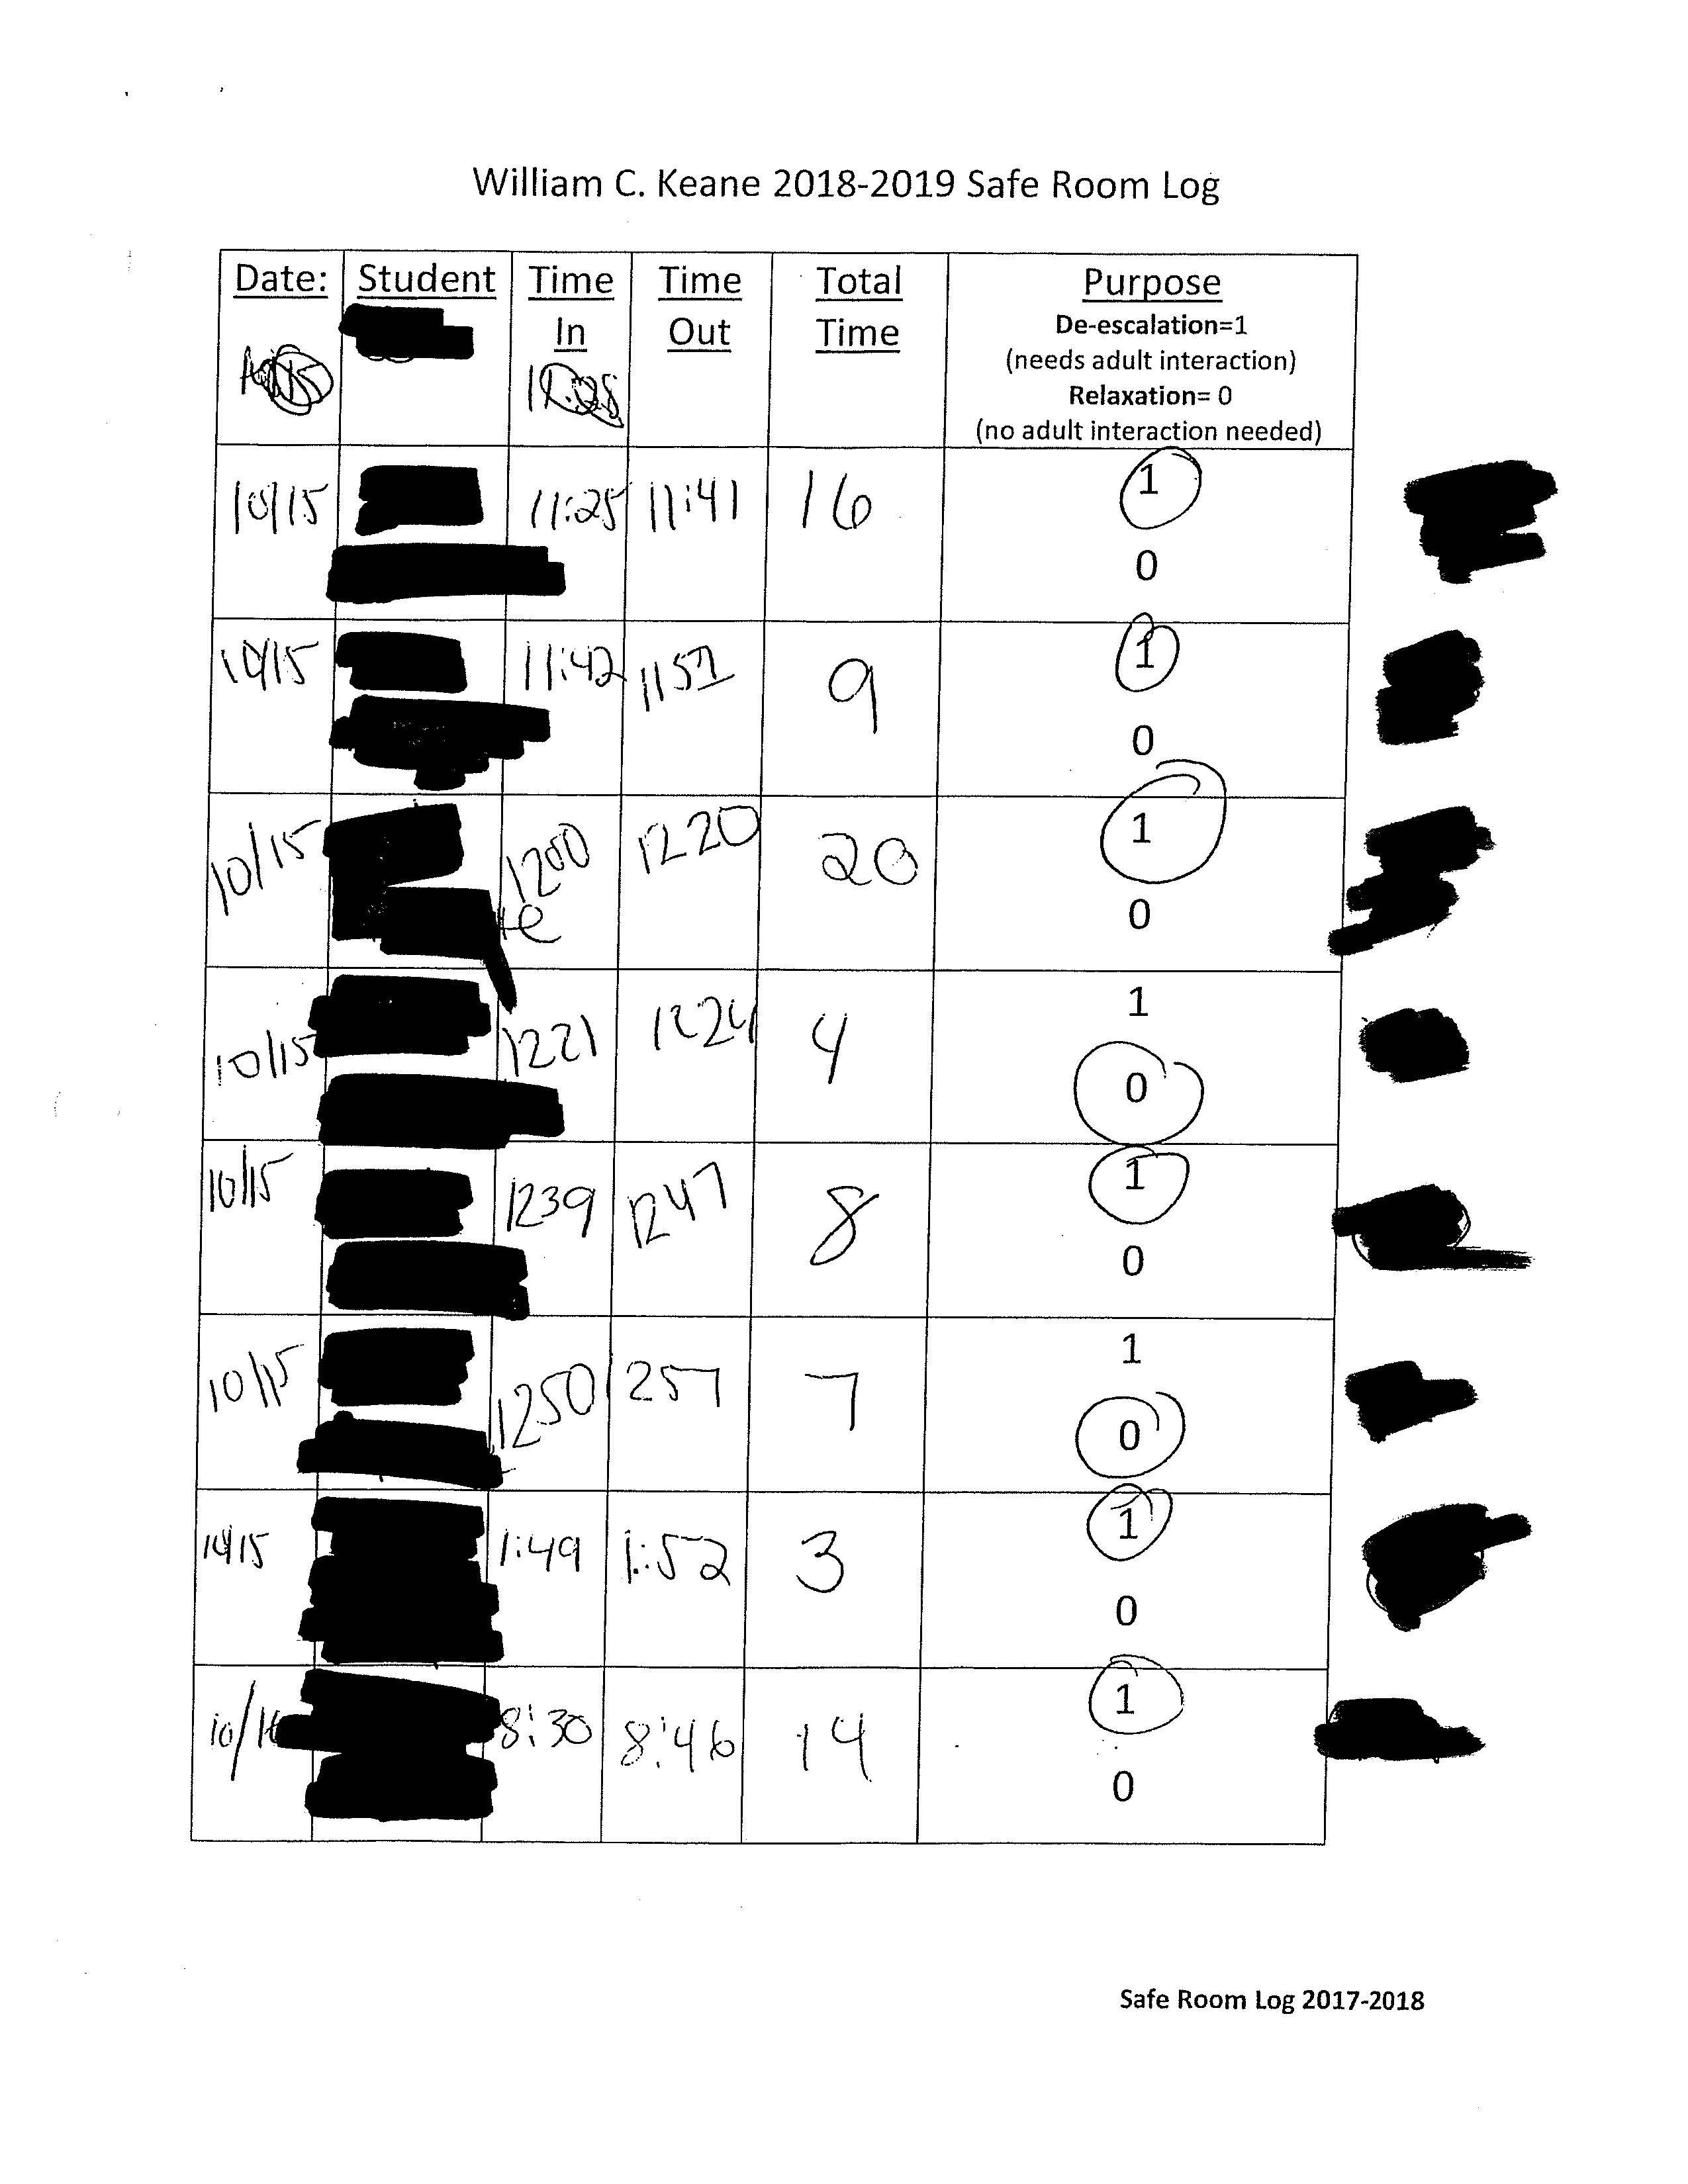 William C. Keane 2018-2019 Safe Room Log
Date: Student Time In Time Out Total Time Purpose
De-escalation=1
(needs adult interaction)
Relaxation= 0
(no adult interaction needed)
10/15 11:25 11:41 16 1
0
10/15 11:42 1151 9 1
0
10/15 1200 1220 20 1
0
10/15 1221 1224 4 1
0
10/15 1239 1247 8 1
0
10/15 1250 1257 7 1
0
10/15 1:49 1:52 3 1
0
10/16 8:30 8:46 14 1
0
Safe Room Log 2017-2018